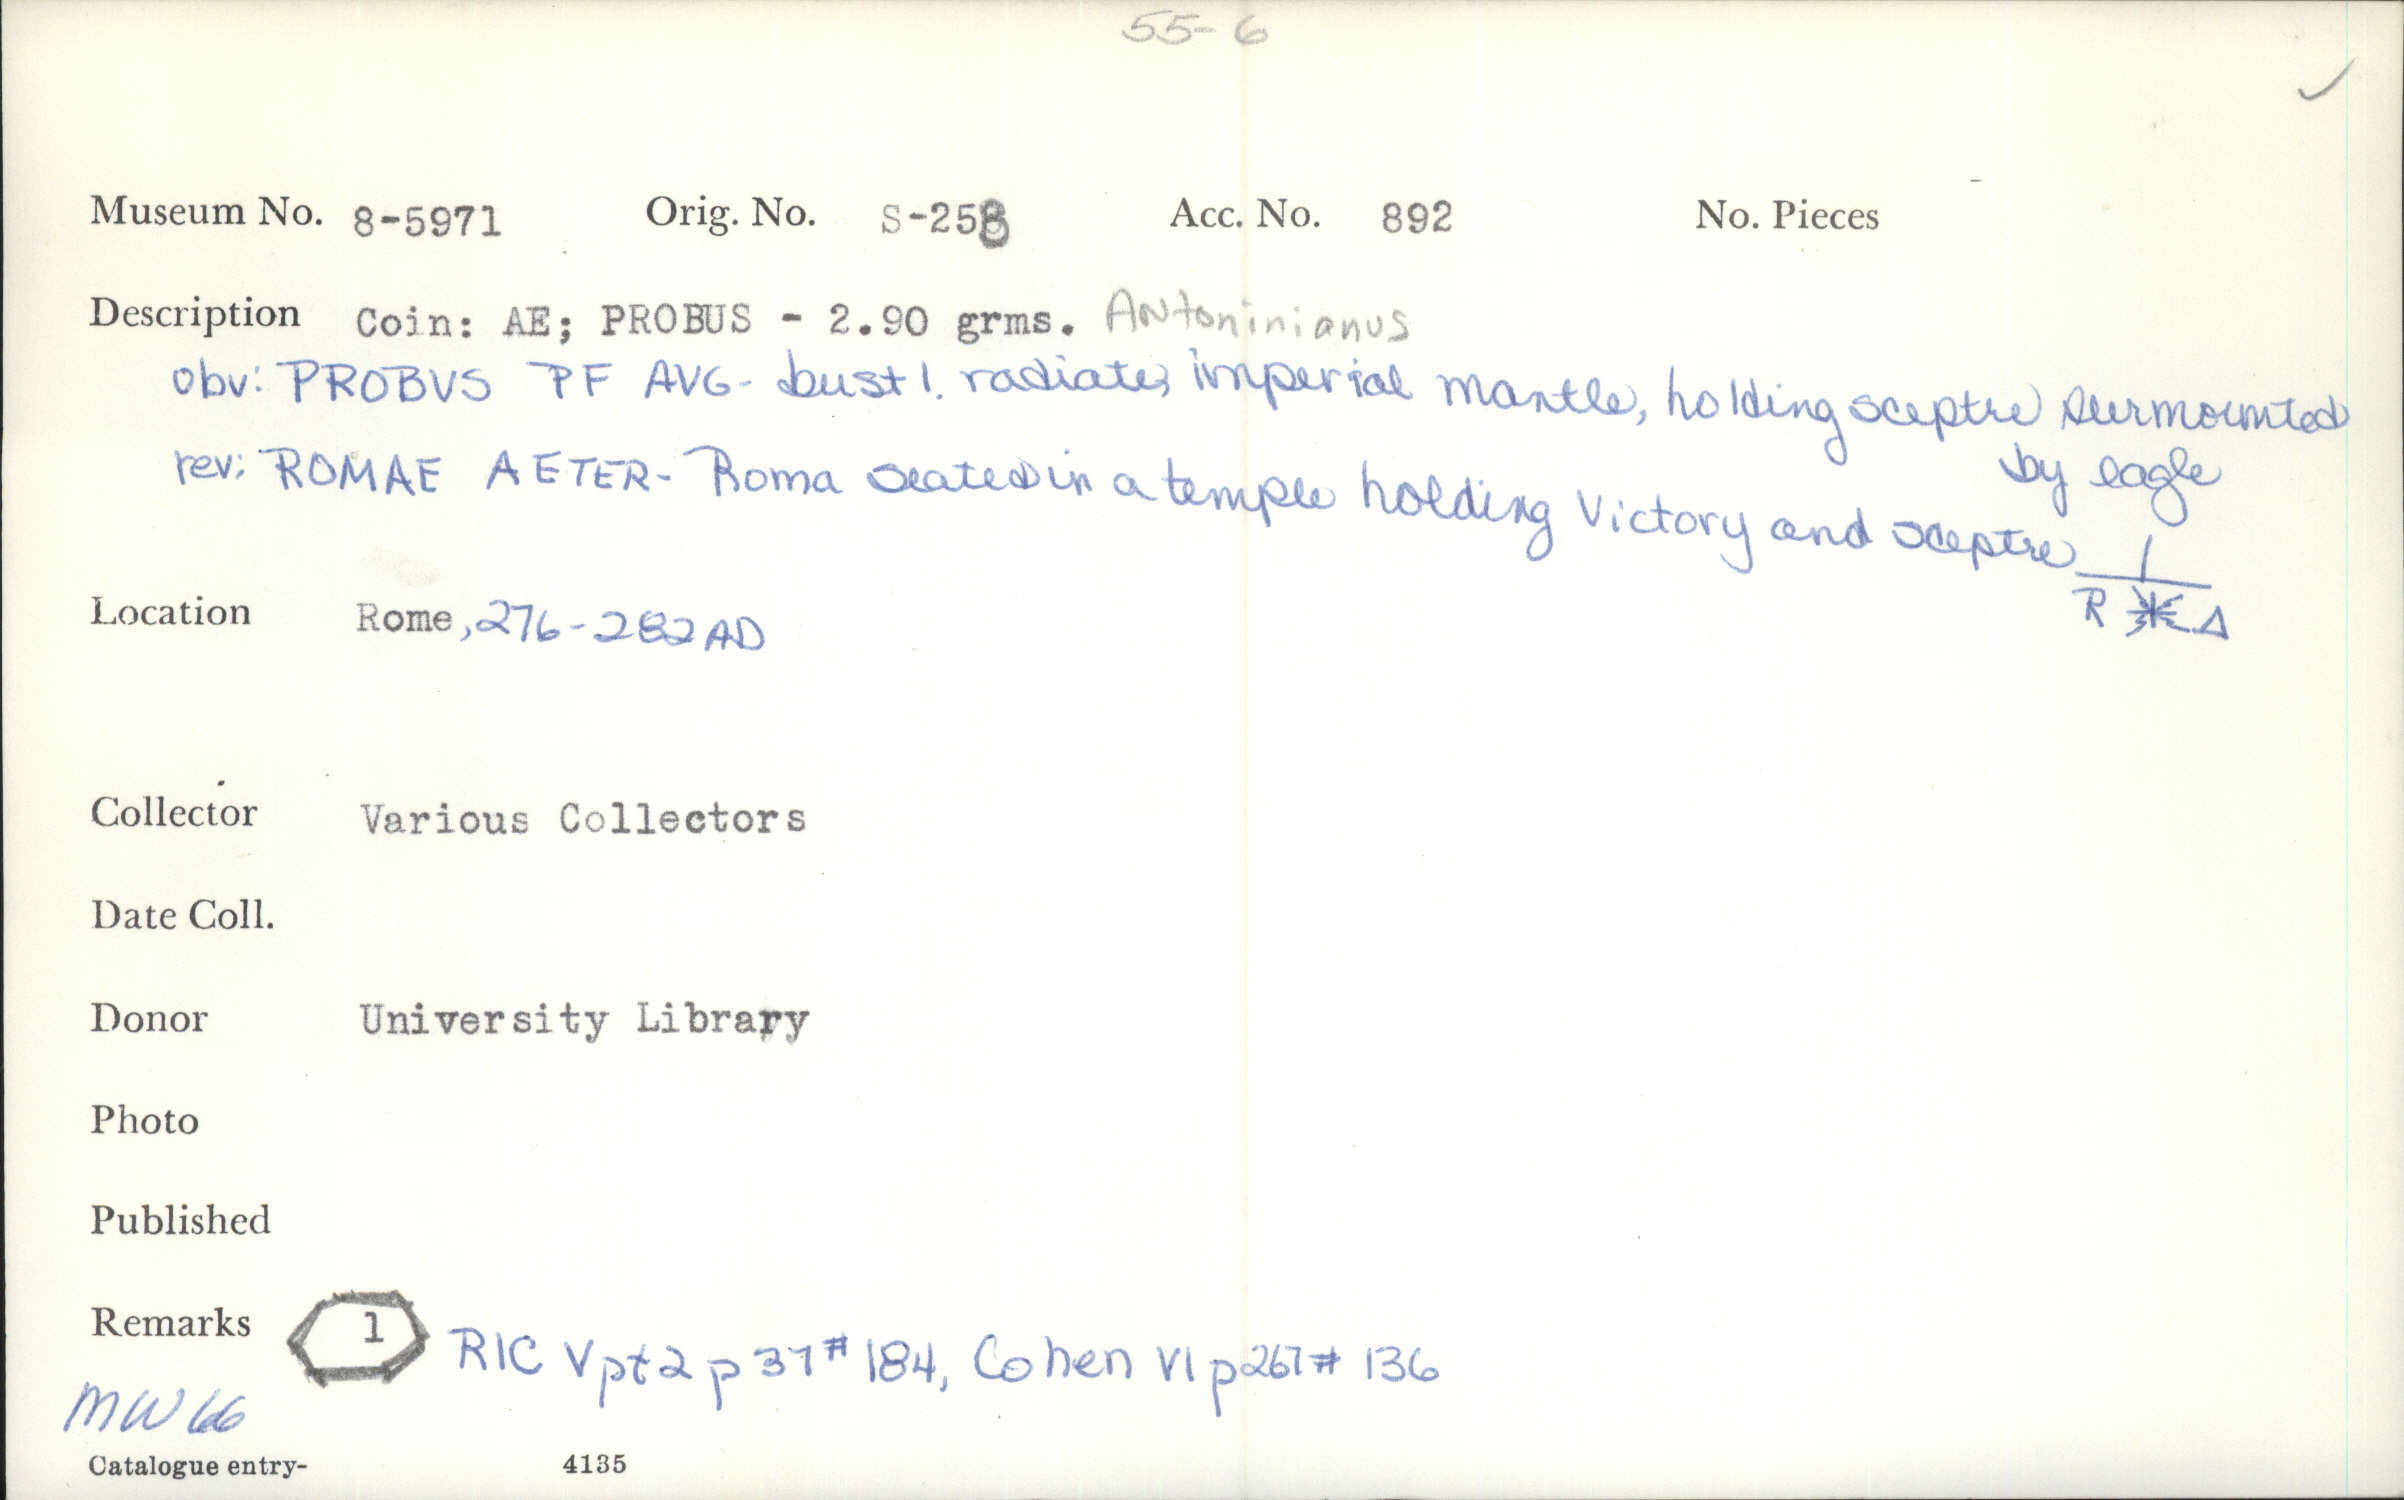 55-6
✓
Museum No. 8-5971 Orig. No. S-258 Acc. No. 892 No. Pieces
Description Coin: AE; PROBUS - 2.90 grms. Antoninianus
obv: PROBVS PF AVG- bust l. radiate, imperial mantle, holding sceptre surmounted
by eagle
rev: ROMAE AETER- Roma seated in a temple holding Victory and sceptre
R Δ
Location Rome, 276-282 AD
Collector Various Collectors
Date Coll.
Donor University Library
Photo
Published
Remarks 1 RIC V pt 2 p 37 # 184, Cohen VI p 267 # 136
MW 66
Catalogue entry- 4135